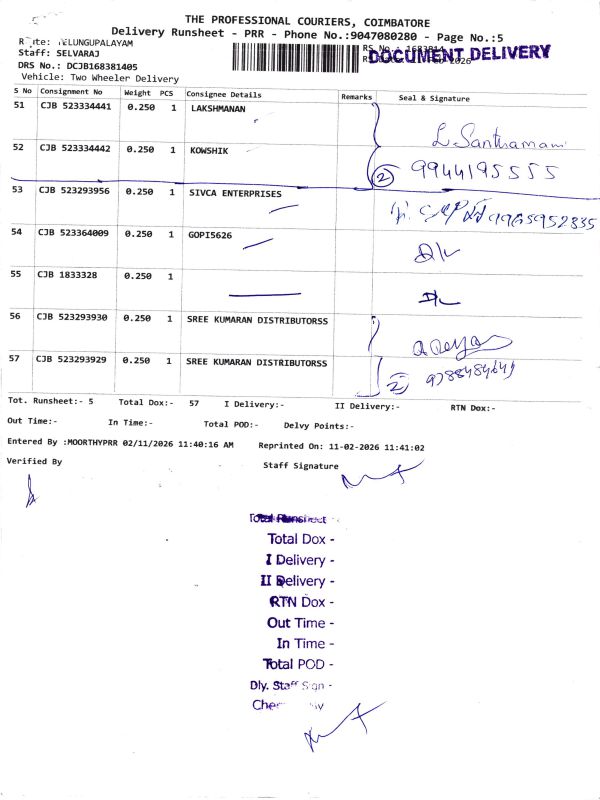 THE PROFESSIONAL COURIERS, COIMBATORE
Delivery Runsheet - PRR - Phone No.:9047080280 - Page No.:5
TELUNGUPALAYAM
Staff: SELVARAJ
DOCUMENT DELIVERY
DRS No.: DCJB168381405
Vehicle: Two Wheeler Delivery
S No Consignment No Weight PCS Consignee Details Remarks Seal & Signature
51 CJB 523334441 0.250 1 LAKSHMANAN
L. Santhamani
52 CJB 523334442 0.250 1 KOWSHIK
2 9944195555
53 CJB 523293956 0.250 1 SIVCA ENTERPRISES
9965952835
54 CJB 523364009 0.250 1 GOPI5626
55 CJB 1833328 0.250 1
56 CJB 523293930 0.250 1 SREE KUMARAN DISTRIBUTORSS
57 CJB 523293929 0.250 1 SREE KUMARAN DISTRIBUTORSS
2
Tot. Runsheet:- 5 Total Dox:- 57 I Delivery:- II Delivery:- RTN Dox:-
Out Time:- In Time:- Total POD:- Delvy Points:-
Entered By :MOORTHYPRR 02/11/2026 11:40:16 AM Reprinted On: 11-02-2026 11:41:02
Verified By Staff Signature
Total Runsheet -
Total Dox -
I Delivery -
II Delivery -
RTN Dox -
Out Time -
In Time -
Total POD -
Dly. Staff Sign -